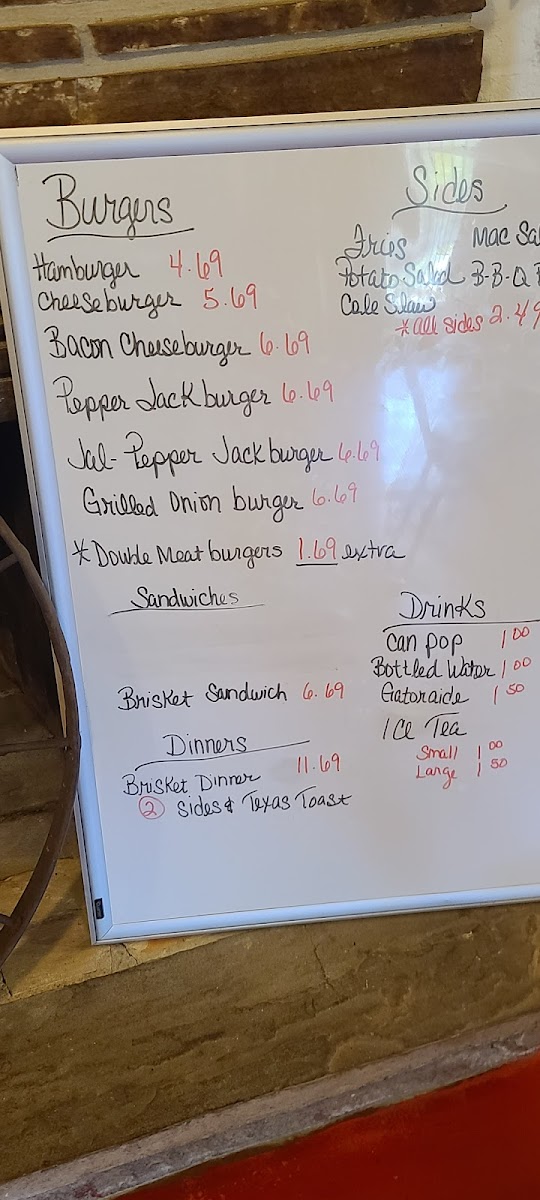 Burgers
Hamburger 4.69
Cheeseburger 5.69
Bacon Cheeseburger 6.69
Pepper Jack burger 6.69
Jal-Pepper Jack burger 6.69
Grilled Onion burger 6.69
*Double Meat burgers 1.69 extra
Sandwiches
Brisket Sandwich 6.69
Dinners
Brisket Dinner 11.69
2 Sides & Texas Toast
Sides
Fries Mac Sa
Potato Salad B-B-Q B
Cole Slaw
*all sides 2.49
Drinks
Can pop 1 00
Bottled Water 1 00
Gatoraide 1 50
ICe Tea
Small 1 00
Large 1 50